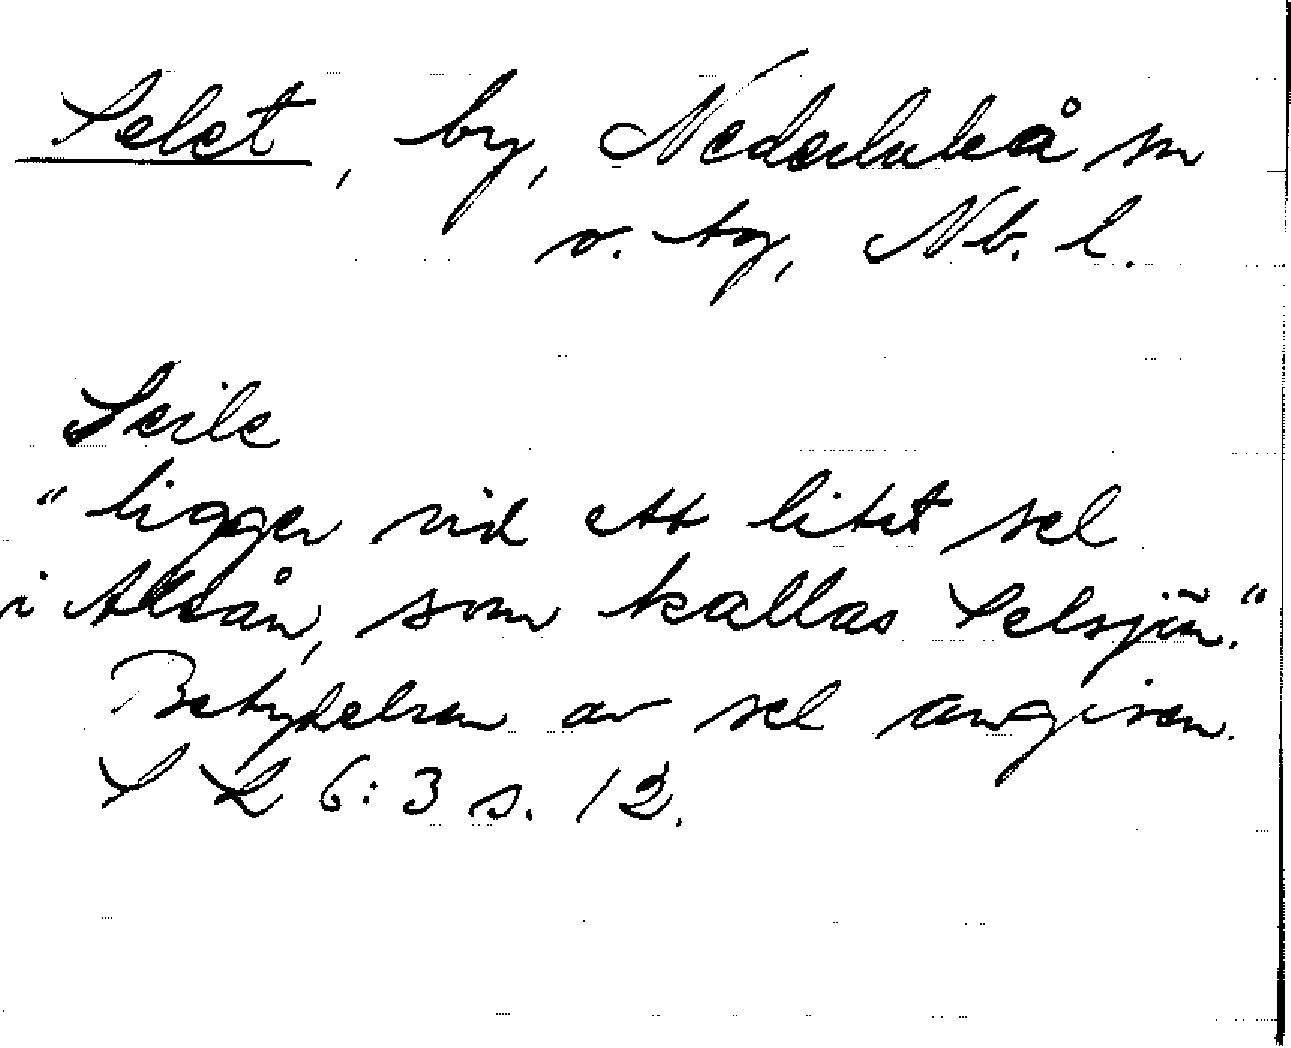 Selet, by, Nederluleå sn
o. tg, Nb. l.
Seile
"ligger vid ett litet sel
i Aleån, som kallas Selsjön."
Betydelsen av sel angiven.
S L 6:3 s. 12.